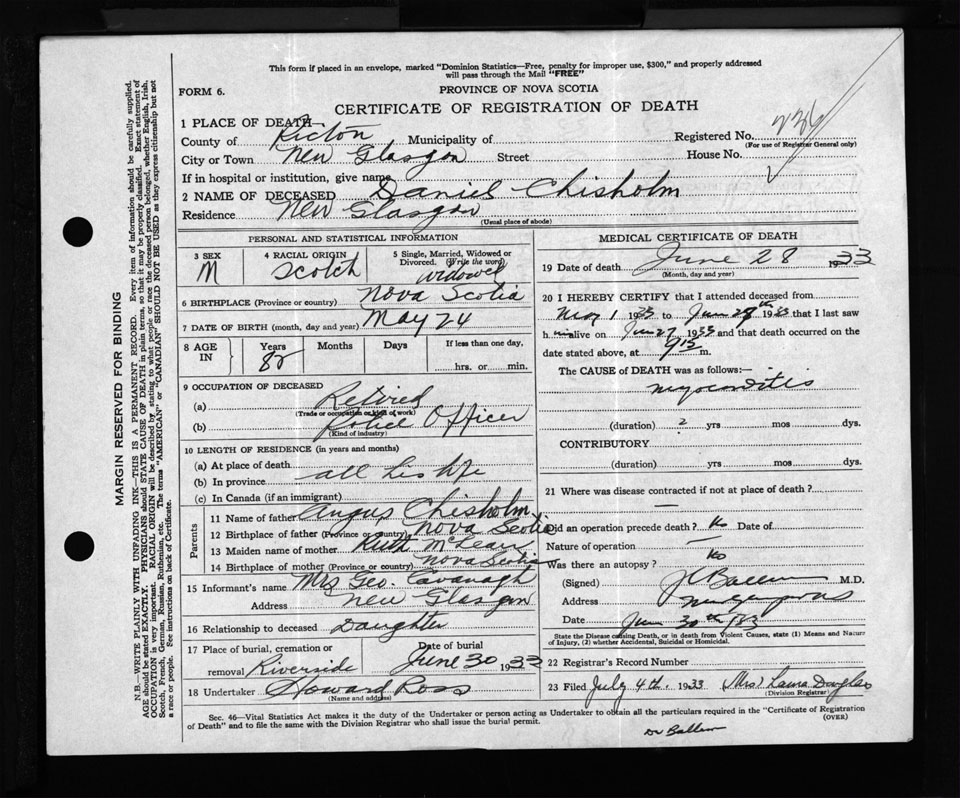 This form if placed in an envelope, marked "Dominion Statistics—Free, penalty for improper use, $300," and properly addressed
will pass through the Mail "FREE"
FORM 6.
PROVINCE OF NOVA SCOTIA
CERTIFICATE OF REGISTRATION OF DEATH
1 PLACE OF DEATH
County of Pictou Municipality of Registered No.
(For use of Registrar General only)
City or Town New Glasgow Street House No.
If in hospital or institution, give name
2 NAME OF DECEASED Daniel Chisholm
Residence New Glasgow
(Usual place of abode)
PERSONAL AND STATISTICAL INFORMATION
3 SEX 4 RACIAL ORIGIN 5 Single, Married, Widowed or
Divorced. (Write the word)
M Scotch widowed
6 BIRTHPLACE (Province or country) Nova Scotia
7 DATE OF BIRTH (month, day and year) May 24
8 AGE IN Years Months Days If less than one day,
82 hrs. or min.
9 OCCUPATION OF DECEASED
(a) Retired
(Trade or occupation or kind of work)
(b) Police Officer
(Kind of industry)
10 LENGTH OF RESIDENCE (in years and months)
(a) At place of death
(b) In province all his life
(c) In Canada (if an immigrant)
Parents
11 Name of father Angus Chisholm
12 Birthplace of father (Province or country) Nova Scotia
13 Maiden name of mother Ruth McLean
14 Birthplace of mother (Province or country) Nova Scotia
15 Informant's name Mrs Geo. Cavanagh
Address New Glasgow
16 Relationship to deceased Daughter
17 Place of burial, cremation or Date of burial
removal Riverside June 30 1933
18 Undertaker Howard Ross
(Name and address)
MEDICAL CERTIFICATE OF DEATH
19 Date of death June 28 1933
(Month, day and year)
20 I HEREBY CERTIFY that I attended deceased from
May 1 1933 to June 28th 1933 that I last saw
h im alive on Jun 27 1933 and that death occurred on
date stated above, at 9 15 m.
The CAUSE of DEATH was as follows:—
myocarditis
(duration) 2 yrs mos dys.
CONTRIBUTORY
(duration) yrs mos dys.
21 Where was disease contracted if not at place of death?
—
Did an operation precede death? No Date of
Nature of operation —
Was there an autopsy? No
(Signed) M.D.
Address
Date June 30th /33
State the Disease causing Death, or in death from Violent Causes, state (1) Means and Nature
of Injury, (2) whether Accidental, Suicidal or Homicidal.
22 Registrar's Record Number
23 Filed July 4th. 1933 (Mrs) Laura Douglas
(Division Registrar)
Sec. 46—Vital Statistics Act makes it the duty of the Undertaker or person acting as Undertaker to obtain all the particulars required in the "Certificate of Registration
of Death" and to file the same with the Division Registrar who shall issue the burial permit.
(OVER)
MARGIN RESERVED FOR BINDING
N.B.—WRITE PLAINLY WITH UNFADING INK—THIS IS A PERMANENT RECORD. Every item of information should be carefully supplied.
AGE should be stated EXACTLY. PHYSICIANS should STATE CAUSE OF DEATH in plain terms, so that it may be properly classified. Exact statement of
OCCUPATION is very important. RACIAL ORIGIN will be described by stating to what people or race the deceased person belonged, whether English, Irish,
Scotch, French, German, Russian, Ruthenian, etc. The terms "AMERICAN" or "CANADIAN" SHOULD NOT BE USED as they express citizenship but not
a race or people. See instructions on back of Certificate.